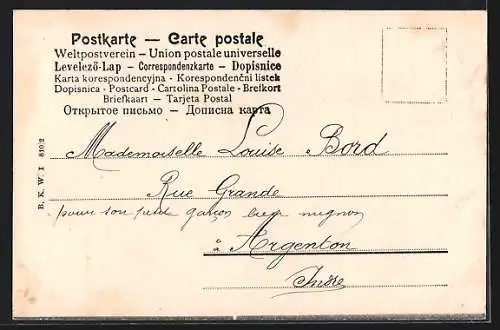 Postkarte — Carte postale
Weltpostverein - Union postale universelle
Levelező-Lap — Correspondenzkarte — Dopisnice
Karta korespondencyjna - Korespondenční listek
Dopisnica - Postcard - Cartolina Postale - Brefkort
Briefkaart — Tarjeta Postal
Открытое письмо — Дописна карта
Mademoiselle Louise Bord
Rue Grande
pour son petit garçon bien mignon
à Argenton
Indre
B. K. W. I 810/2